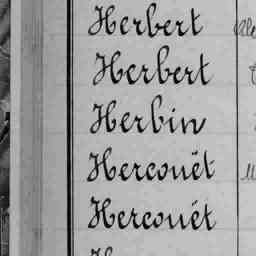 Herbert
Herbert
Herbin
Hercouët
Hercouét